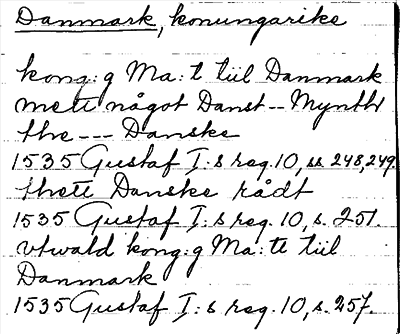 Danmark, konungarike
kong: g Ma: t till Danmark
mett något Danst -- Mynthe
the --- Danske
1535 Gustaf I:s reg. 10, ss 248, 249.
thett Danske rådt
1535 Gustaf I:s reg. 10, s. 251.
vtwald kong: g Ma: tt till
Danmark
1535 Gustaf I:s reg. 10, s. 257.